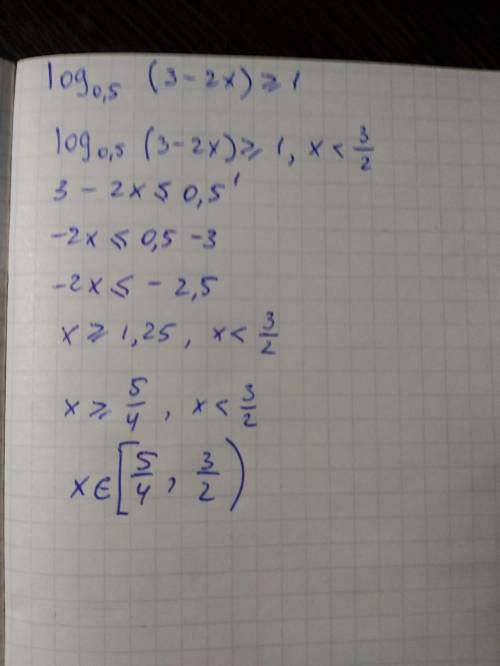 log₀,₅ (3 - 2x) ⩾ 1
log₀,₅ (3 - 2x) ⩾ 1, x < 3/2
3 - 2x ⩽ 0,5¹
-2x ⩽ 0,5 - 3
-2x ⩽ - 2,5
x ⩾ 1,25, x < 3/2
x ⩾ 5/4, x < 3/2
x ∈ [5/4, 3/2)